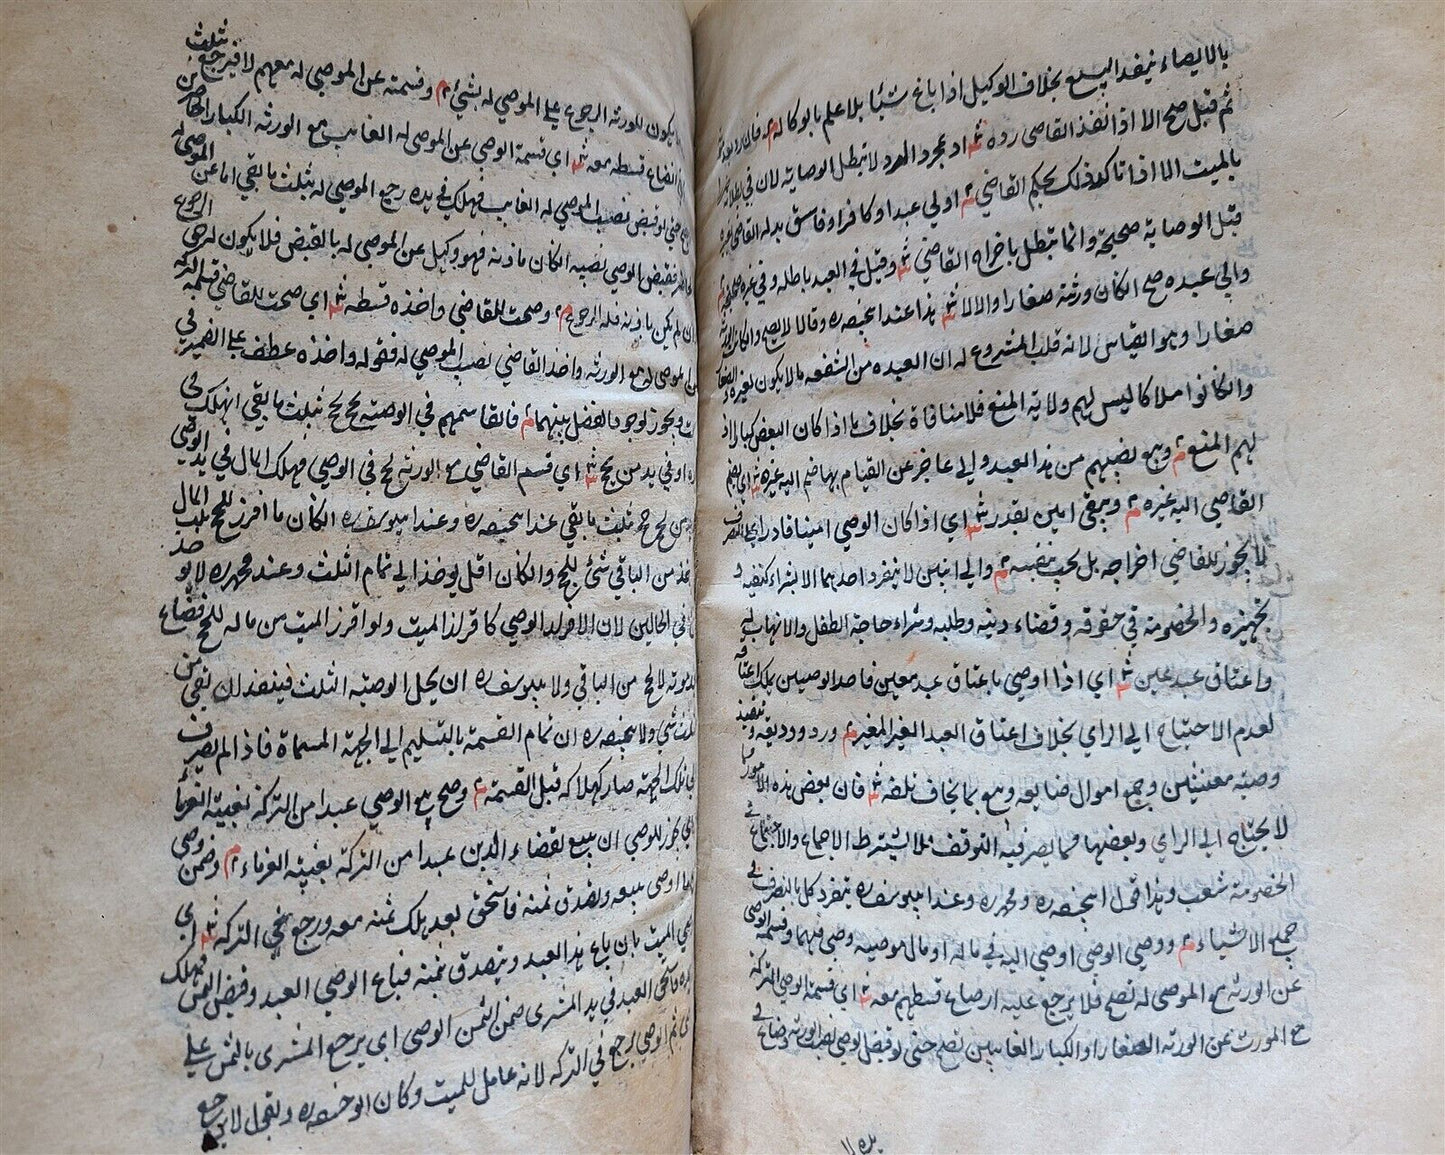 بالايصاء ينفذ البيع بخلاف الوكيل اذا باع شيئا بلا علم بالوكالة م فان رد بعد
ثم قبل صح الا اذا نفذ القاضي رده ش اذ بمجرد الرد لا تبطل الوصاية لان في ابطاله
بالميت الا اذا تاكد ذلك بحكم القاضي م او لي عبد او كافر او فاسق بدله القاضي بغيره
قبل الوصاية صحيحة وانما تبطل باخراج القاضي ش وقيل في العبد باطلة وفي غيره صحيحة م
والي عبده صح ان كان ورثته صغارا والا لا ش هذا عند ابيحنيفه ره وقالا لا يصح وان كان الورثة
صغارا وهو القياس لانه قلب المشروع له ان العبد من الشفقه مالا يكون لغيره والصغار
وان كانوا ملاكا ليس لهم ولاية المنع فلا منافاة بخلاف ما اذا كان البعض كبارا اذ
لهم المنع م وبيع نصيبهم من هذا العبد والي عاجز عن القيام بها ضم اليه غيره ش اي يضم
القاضي اليه غيره م ويبقى امين يقدر ش اي اذا كان الوصي امينا قادرا على التصرف
لا يجوز للقاضي اخراجه بل يجب تبقيته م والي اثنين لا ينفرد احدهما الا بشراء كفنه و
تجهيزه والخصومة في حقوقه وقضاء دينه وطلبه وشراء حاجة الطفل والاتهاب له
واعتاق عبد عين ش اي اذا اوصي باعتاق عبد معين فاحد الوصيين يملك اعتاقه
لعدم الاحتياج الي الراي بخلاف اعتاق العبد الغير المعين م ورد وديعة وتنفيذ
وصية معينتين وجمع اموال ضايعة وبيع ما يخاف تلفه ش فان بعض هذه الامور
لا يحتاج الي الراي وبعضها مما يضر فيه التوقف فلا يشترط الاجماع والاجتماع في
الخصومة شغب وهذا قول ابيحنيفه ره ومحمد ره وعند ابيوسف ره ينفرد كل بالتصرف في
جميع الاشياء م ووصي الوصي اوصي اليه في ماله او مال موصيه وصي فيهما وقسمة الوصي
عن الورثة مع الموصي له تصح فلا يرجع عليه ان ضاع قسطهم معه ش اي قسمة الوصي التركة
عن الورثة الصغار او الكبار الغايبين تصح حتى لو قبض الوصي نصيب الورثة وضاع في
يده لا
يكون للورثة الرجوع على الموصي له بشيء م وقسمته عن الموصي له معهم لا فيرجع بثلث
قسطه معه ش اي قسمة الوصي عن الموصي له الغايب مع الورثة الكبار الحاضرين
لو قبض نصيب الموصي له الغايب فهلك في يده رجع الموصي له بثلث ما بقي اما عن الموصي له
فقبض الوصي نصيبه ان كان باذنه فهو وكيل عن الموصي له بالقبض فلا يكون له حق الرجوع
لم يكن باذنه فله الرجوع م وصحت للقاضي واخذه قسطه ش اي صحت للقاضي قسمة التركة
الموصي له مع الورثة واخذ القاضي نصيب الموصي له فقوله واخذه عطف على الضمير في
ويجوز لوجود الفصل بينهما م فان قاسمهم في الوصية بحج حج بثلث ما بقي ان هلك في
او في يد من يحج ش اي قسم القاضي مع الورثة لحج في الوصي فهلك المال في يد الوصي
ثلث ما بقي عند ابيحنيفه ره وعند ابيوسف ره ان كان ما افرز للحج ثلث المال
من الباقي شئ للحج وان كان اقل يوخذ الي تمام الثلث وعند محمد ره لا يوخذ
في الحالين لان افراز الوصي كافراز الميت ولو افرز الميت من ماله للحج فضاع
موته لا يحج من الباقي ولابيوسف ره ان محل الوصية الثلث فينفذ ان بقي من
الثلث شئ ولابيحنيفه ره ان تمام القسمة بالتسليم الي الجهة المسماة فاذا لم يصرف
تلك الجهة صار كهلاكه قبل القسمة م وصح بيع الوصي عبدا من التركة بغيبة الغرماء
للوصي ان يبيع لقضاء الدين عبدا من التركة بغيبة الغرماء م وضمن وصي
اوصي ببيعه وتصدق ثمنه فاستحق بعد هلك ثمنه معه ورجع في التركة ش اي
الميت بان باع هذا العبد ويتصدق بثمنه فباع الوصي العبد وقبض الثمن فهلك
العبد في يد المشتري ضمن الثمن الوصي اي يرجع المشتري بالثمن على
ثم الوصي يرجع في التركة لانه عامل للميت وكان ابو حنيفه ره يقول لا يرجع